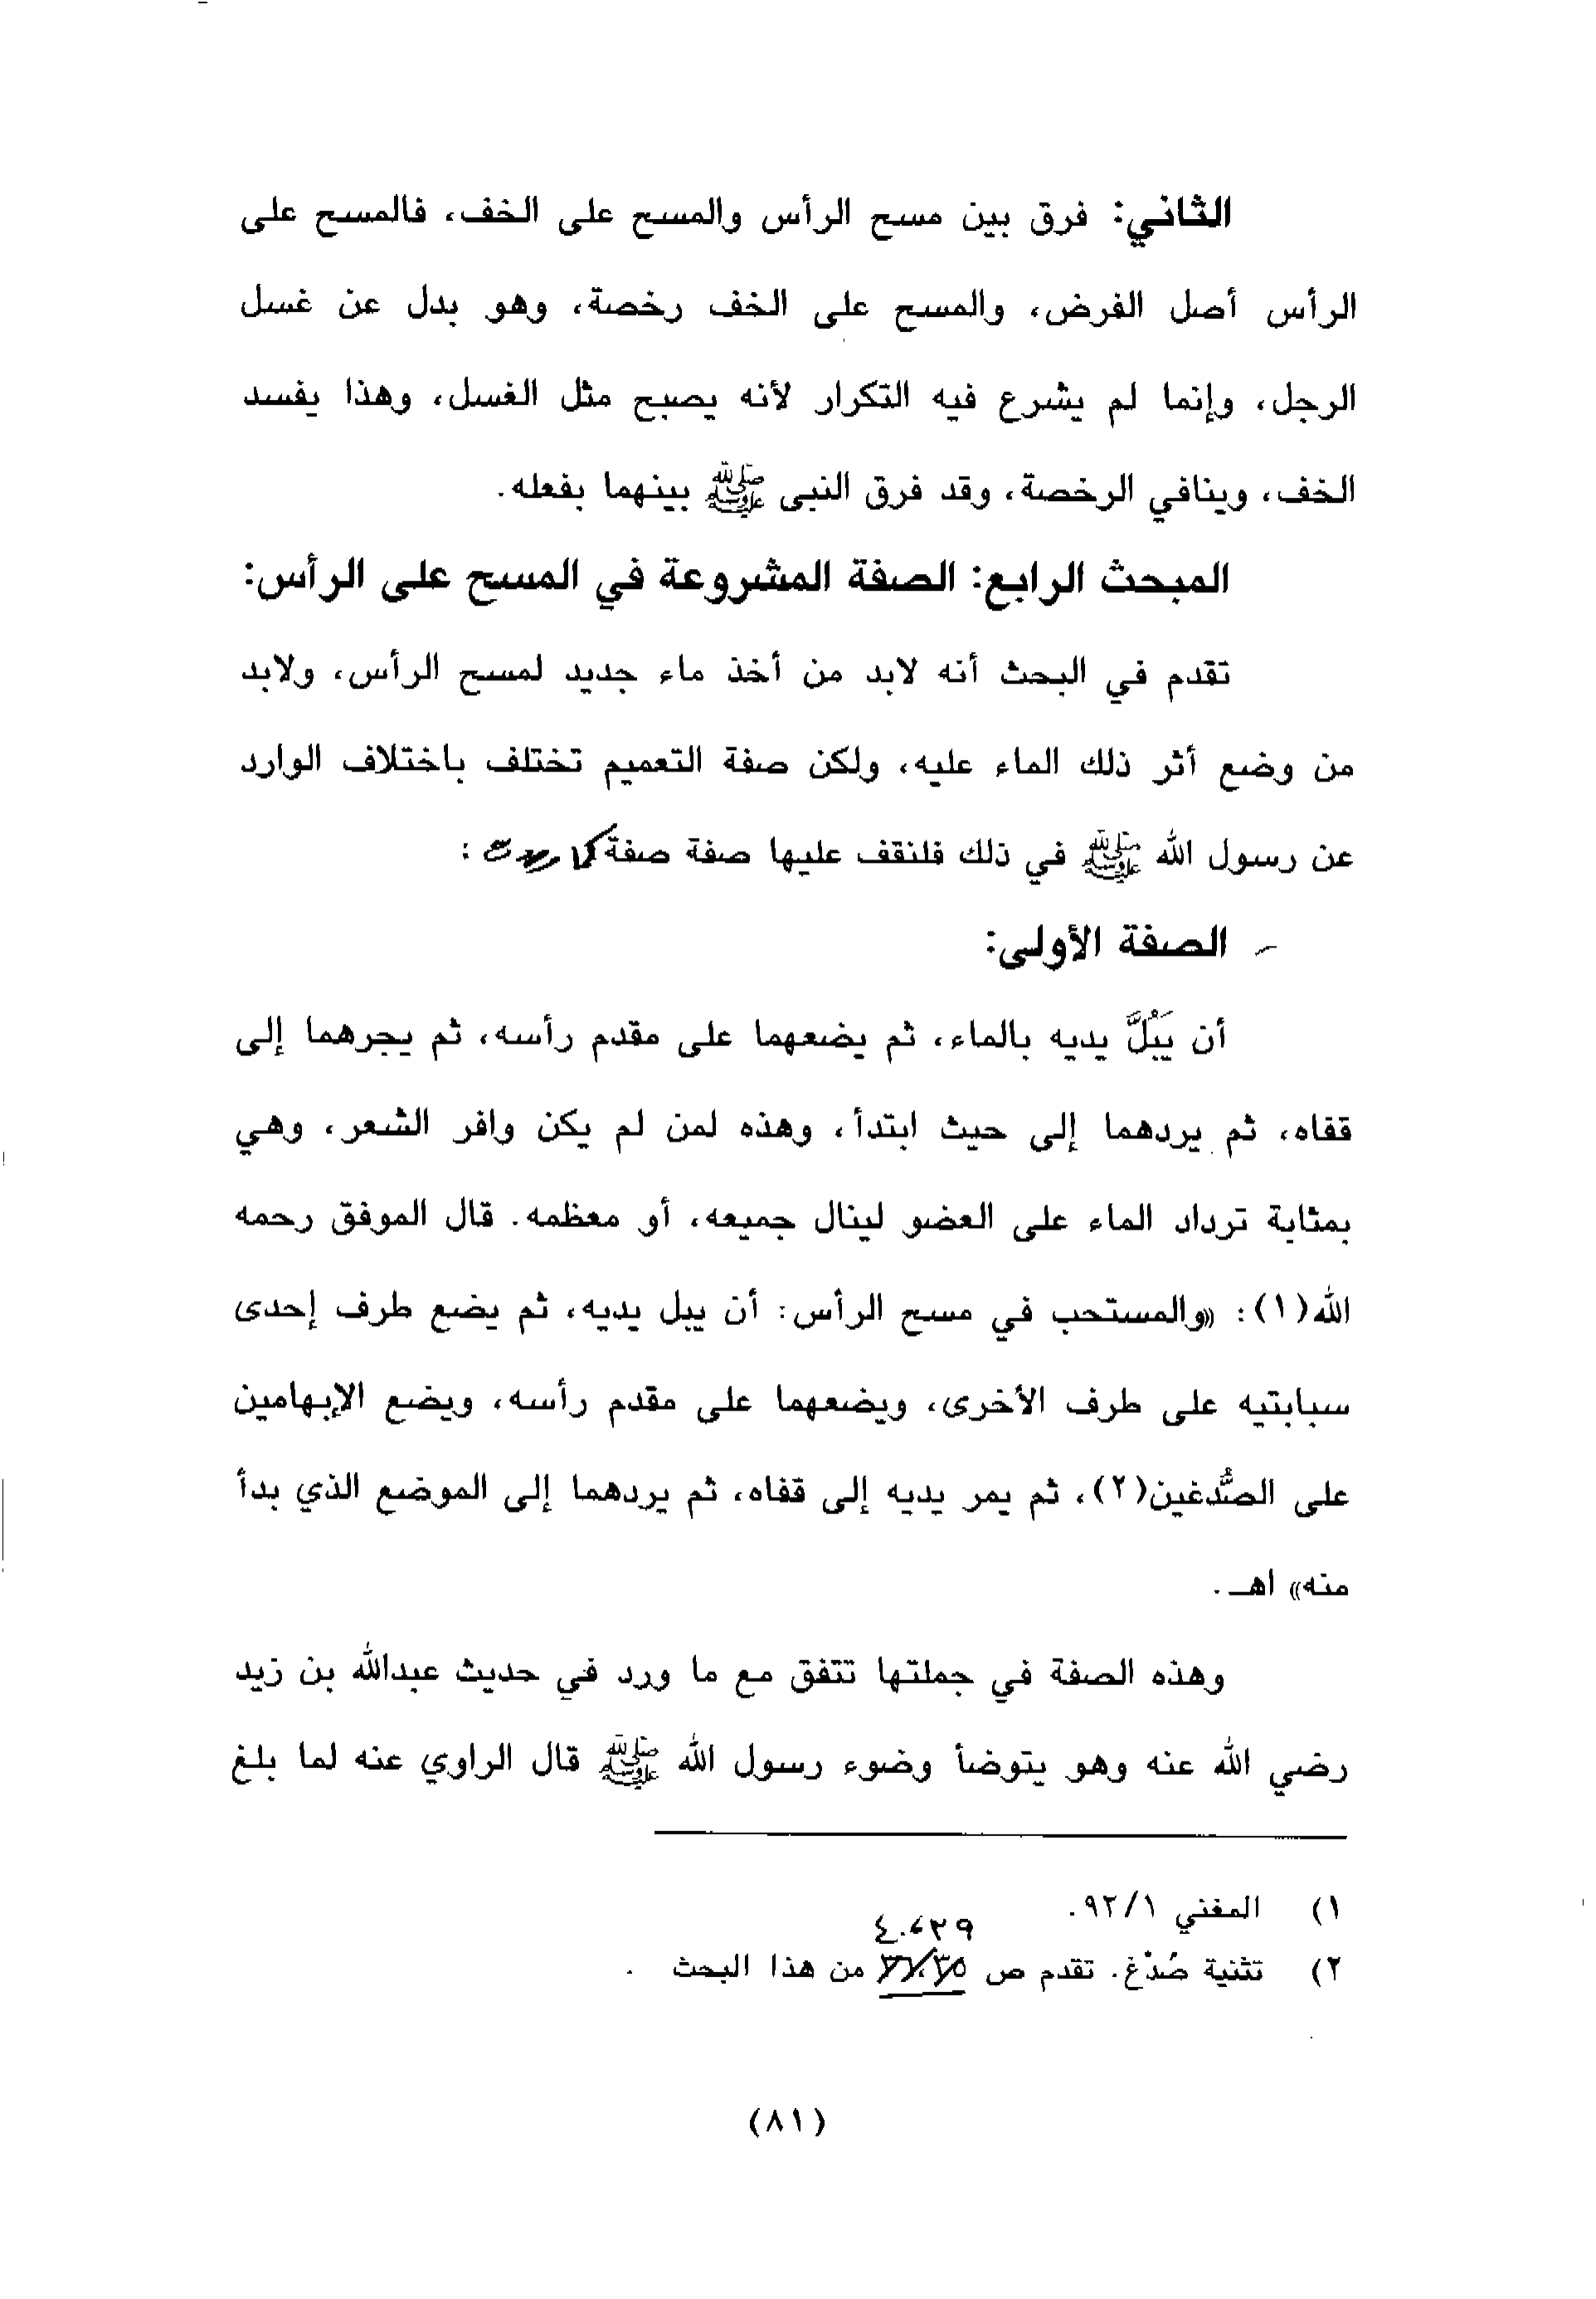 الثاني: فرق بين مسح الرأس والمسح على الخف، فالمسح على
الرأس أصل الفرض، والمسح على الخف رخصة، وهو بدل عن غسل
الرجل، وإنما لم يشرع فيه التكرار لأنه يصبح مثل الغسل، وهذا يفسد
الخف، وينافي الرخصة، وقد فرق النبى ﷺ بينهما بفعله.
المبحث الرابع: الصفة المشروعة في المسح على الرأس:
تقدم في البحث أنه لابد من أخذ ماء جديد لمسح الرأس، ولابد
من وضع أثر ذلك الماء عليه، ولكن صفة التعميم تختلف باختلاف الوارد
عن رسول الله ﷺ في ذلك فلنقف عليها صفة صفة :
- الصفة الأولى:
أن يَبُلَّ يديه بالماء، ثم يضعهما على مقدم رأسه، ثم يجرهما إلى
قفاه، ثم يردهما إلى حيث ابتدأ، وهذه لمن لم يكن وافر الشعر، وهي
بمثابة ترداد الماء على العضو لينال جميعه، أو معظمه. قال الموفق رحمه
الله(١): «والمستحب في مسح الرأس: أن يبل يديه، ثم يضع طرف إحدى
سبابتيه على طرف الأخرى، ويضعهما على مقدم رأسه، ويضع الإبهامين
على الصُّدغين(٢)، ثم يمر يديه إلى قفاه، ثم يردهما إلى الموضع الذي بدأ
منه» اهـ.
وهذه الصفة في جملتها تتفق مع ما ورد في حديث عبدالله بن زيد
رضي الله عنه وهو يتوضأ وضوء رسول الله ﷺ قال الراوي عنه لما بلغ
١) المغني ٩٢/١.
٣٩،٤٠
٢) تثنية صُدْغ. تقدم ص من هذا البحث .
(٨١)